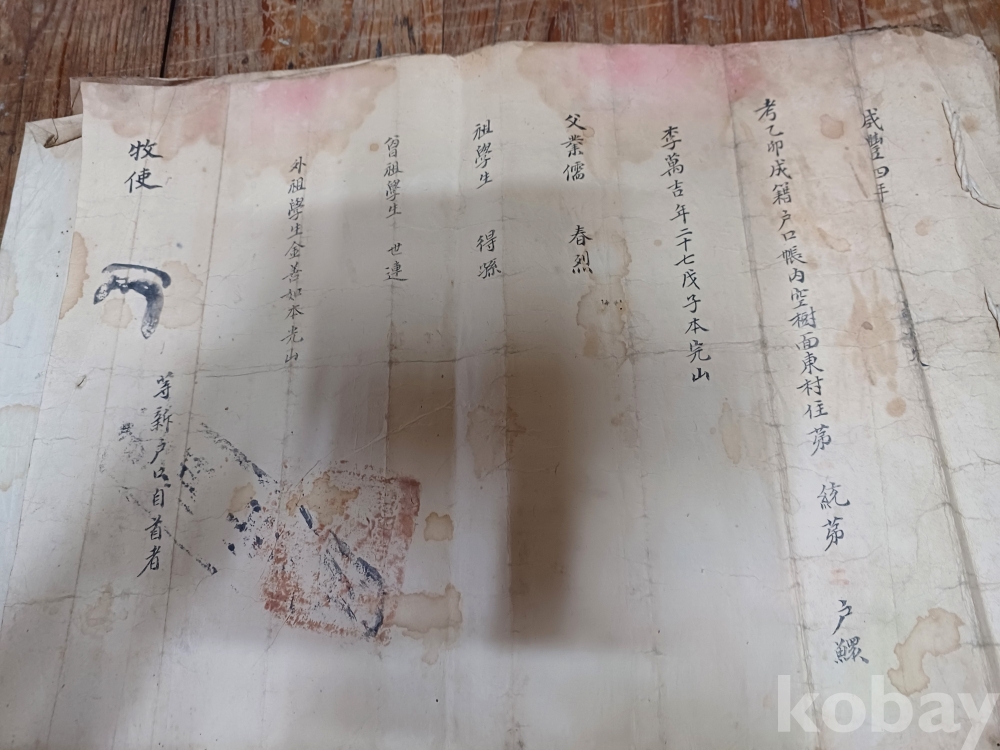 咸豐四年
考乙卯成籍戶口帳內空樹面東村住第 統第 二 戶鰥
李萬吉年二十七戊子本完山
父業儒 春烈
祖學生 得孫
曾祖學生 世連
外祖學生金善如本光山
等新戶口自首者
牧使
kobay